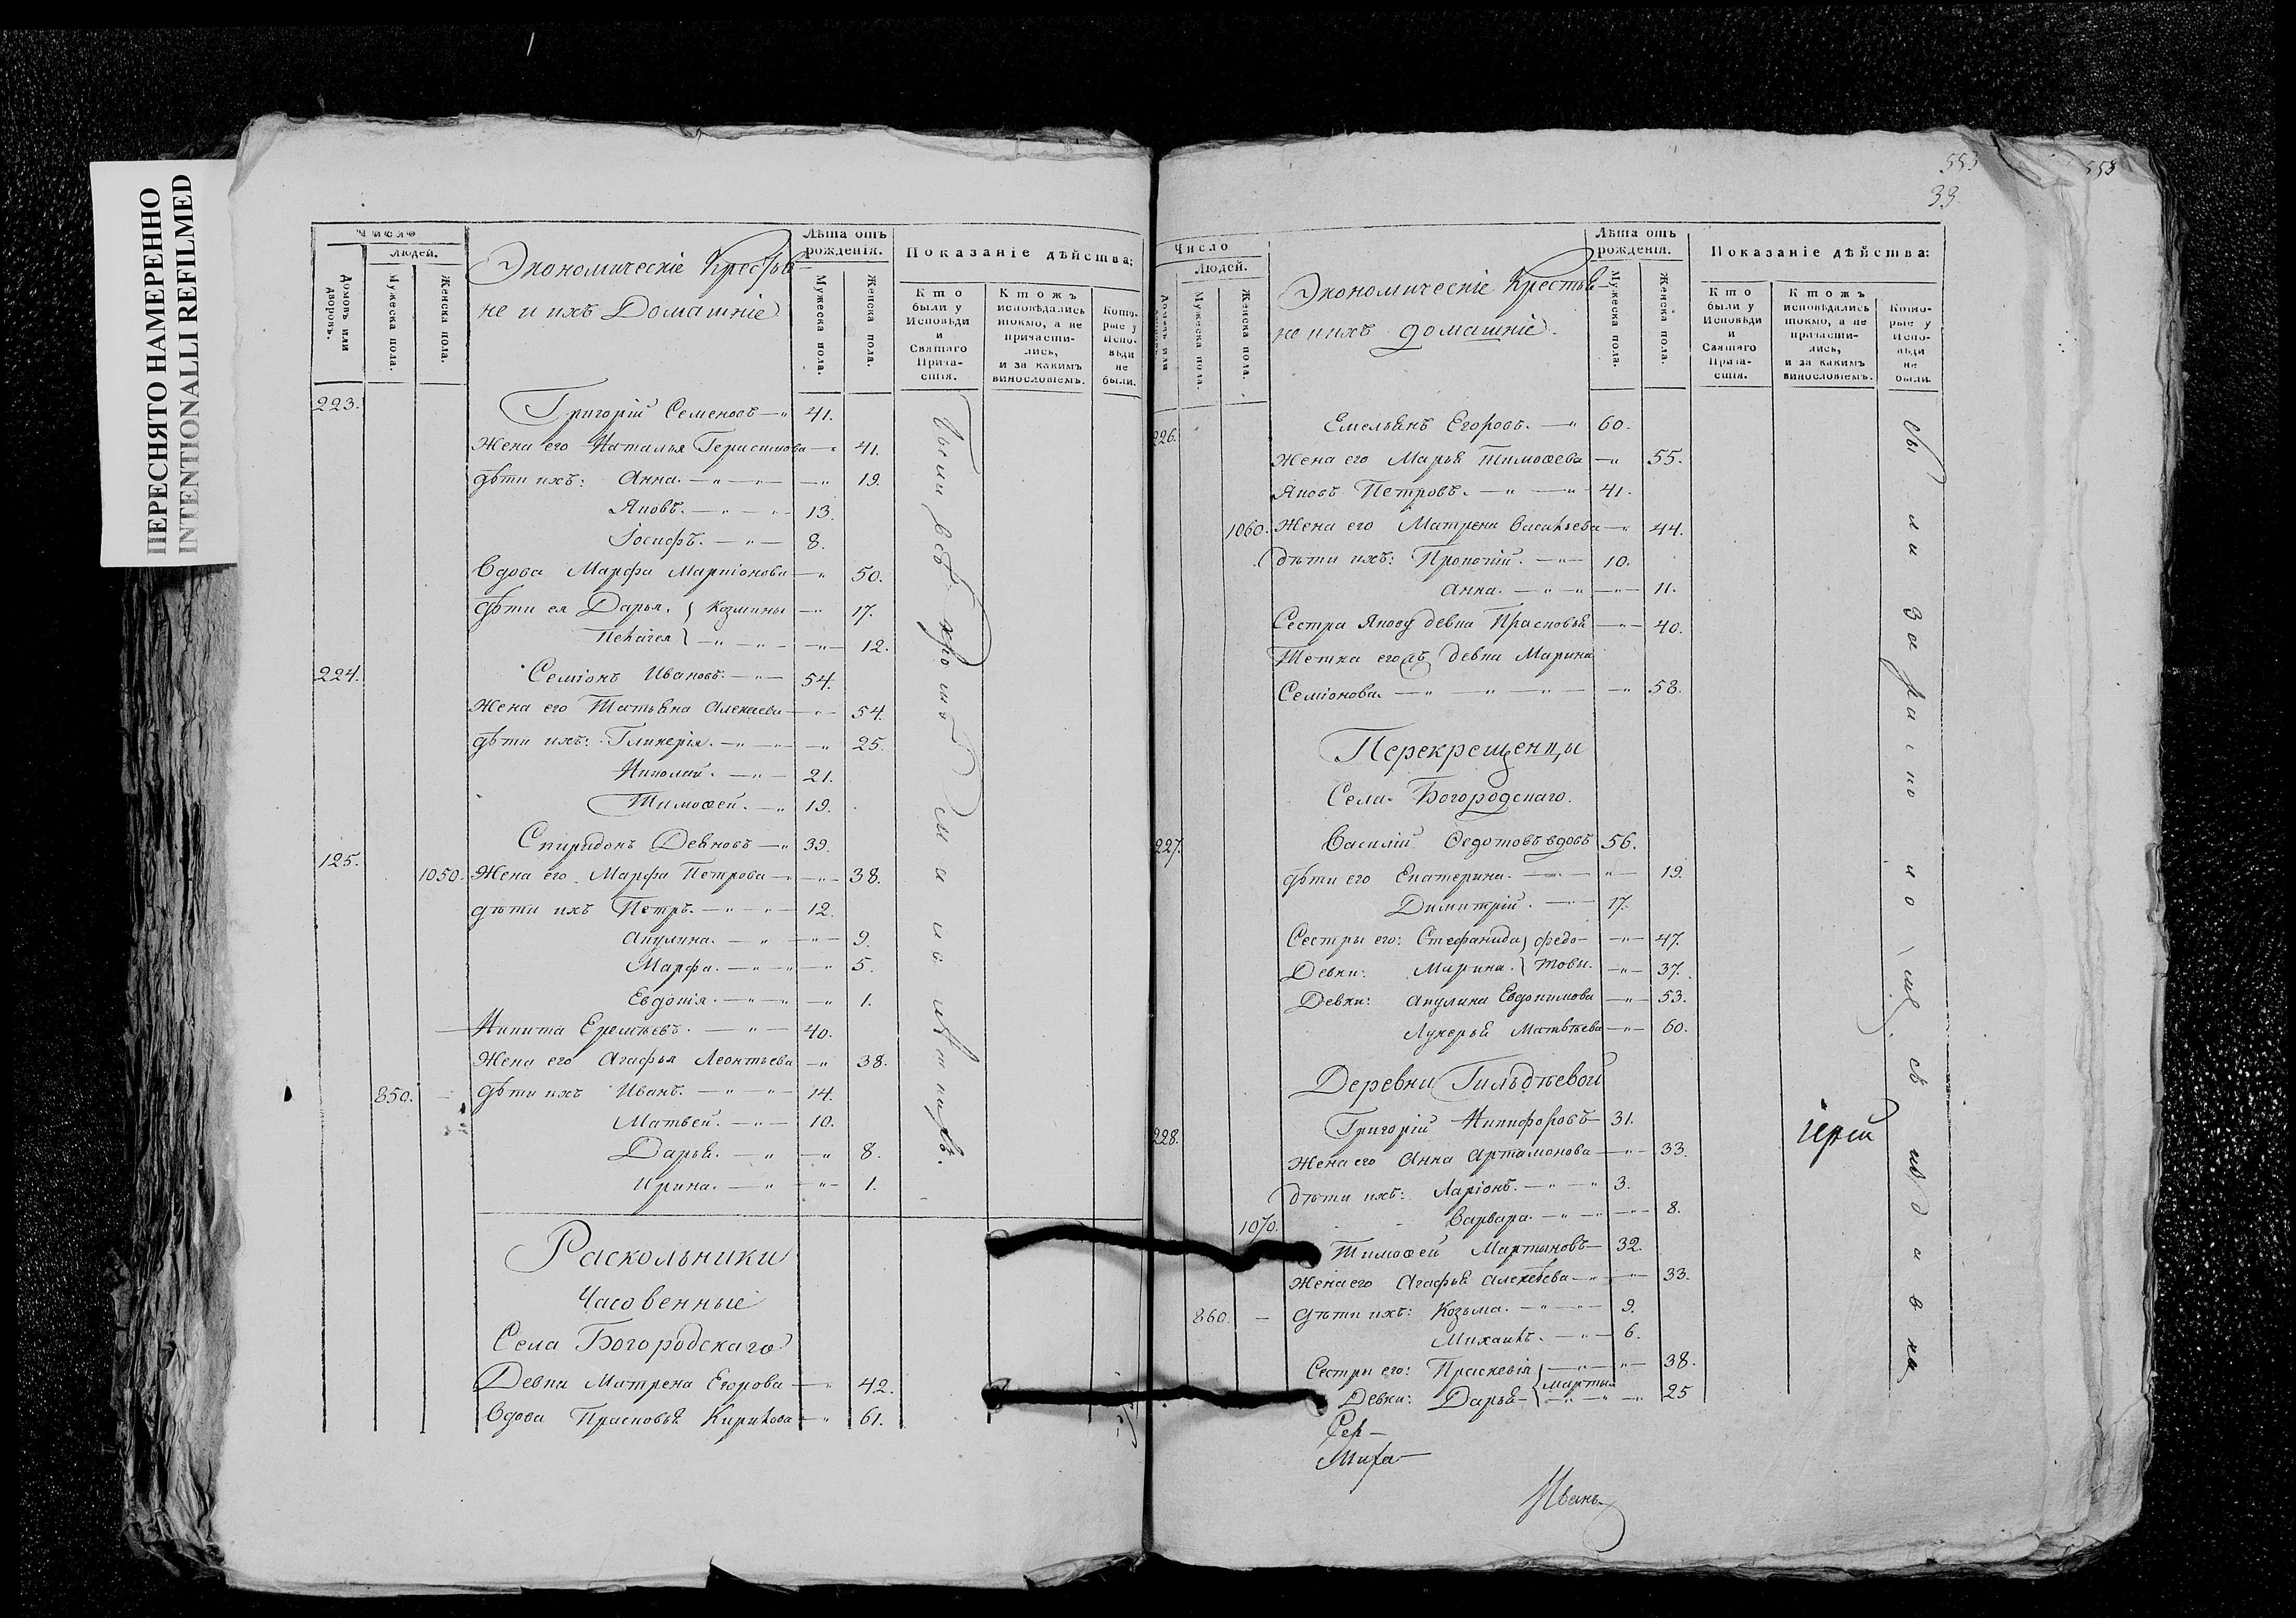 ПЕРЕСНЯТО НАМЕРЕННО
INTENTIONALLI REFILMED
Число
Людей.
Домовъ или дворовъ.
Мужеска пола.
Женска пола.
Экономическіе Крестья-
не и ихъ Домашніе
Лѣта отъ рожденія.
Мужеска пола.
Женска пола.
Показаніе дѣйства:
Кто были у Исповѣди и Святаго Прича-стія.
Ктожъ исповѣдались токмо, а не причасти-лись, и за какимъ винословіемъ.
Кото-рые у Испо-вѣди не были.
223. Григорій Семеновъ 41.
Жена его Наталья Герасимова 41.
дѣти ихъ: Анна. 19.
Яковъ. 13.
Іосифъ. 8.
Вдова Марфа Маркіонова 50.
Дѣти ея Дарья. } Козмины 17.
Пелагея } 12.
224. Семіонъ Ивановъ. 54.
Жена его Татьяна Алекѣева 54.
дѣти ихъ: Гликерія. 25.
Николай. 21.
Тимоѳей. 19.
Спиридонъ Деяновъ 39.
125.
1050. Жена его Марфа Петрова 38.
дѣти ихъ Петръ. 12.
Акулина. 9.
Марфа. 5.
Евдокія. 1.
Никита Еремѣевъ. 40.
Жена его Агафья Леонтьева 38.
850. дѣти ихъ Иванъ. 14.
Матвей. 10.
Дарья. 8.
Ирина. 1.
Раскольники
Часовенные
Села Богородскаго
Девка Матрена Егорова 42.
Вдова Прасковья Кирилова 61.
553
39.
558
Число
Людей.
Домовъ или дворовъ.
Мужеска пола.
Женска пола.
Экономическіе Крестья-
не и ихъ домашніе.
Лѣта отъ рожденія.
Мужеска пола.
Женска пола.
Показаніе дѣйства:
Кто были у Исповѣди и Святаго Прича-стія.
Ктожъ исповѣдались токмо, а не причасти-лись, и за какимъ винословіемъ.
Кото-рые у Испо-вѣди не были.
226. Емельянъ Егоровъ. 60.
Жена его Марья Тимоѳева 55.
Яковъ Петровъ. 41.
1060. Жена его Матрена Васильева 44.
Дѣти ихъ: Прокопій. 10.
Анна. 11.
Сестра Якову девка Прасковья 40.
Тетка егожъ девка Марина
Семіонова. 58.
Перекрещенцы
Села Богородскаго.
227. Василій Ѳедотовъ вдовъ 56.
дѣти его Екатерина. 19.
Димитрій. 17.
Сестры его: Стефанида } федо- 47.
Девки: Марина. } товы. 37.
Девки: Акулина Евдокимова 53.
Лукерья Матвѣева 60.
Деревни Гильдѣевой
228. Григорій Никифоровъ 31.
Жена его Анна Артамонова 33.
Дѣти ихъ: Ларіонъ. 3.
1070. Варвара. 8.
Тимоѳей Мартыновъ 32.
Жена его Агафья Алексѣева 33.
860. Дѣти ихъ: Козьма. 9.
Михаилъ. 6.
Сестры его: Праскевія } 38.
Девки: Дарья } марты. 25
іерей
Иванъ